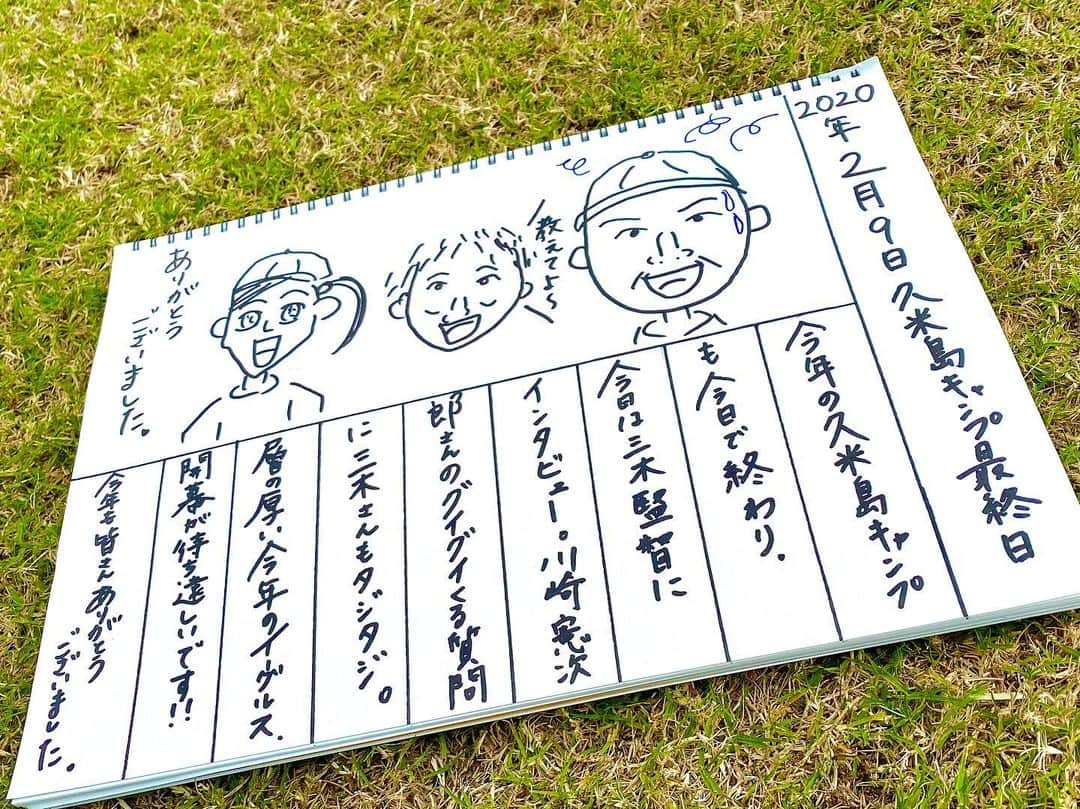 2020年2月9日久米島キャンプ最終日
教えてよ〜
ありがとう
ございました。
今年の久米島キャンプ
も今日で終わり。
今日は三木監督に
インタビュー。川崎憲次
郎さんのグイグイくる質問
に三木さんもタジタジ。
層の厚い今年のイーグルス。
開幕が待ち遠しいです!!
今年も皆さんありがとう
ございました。